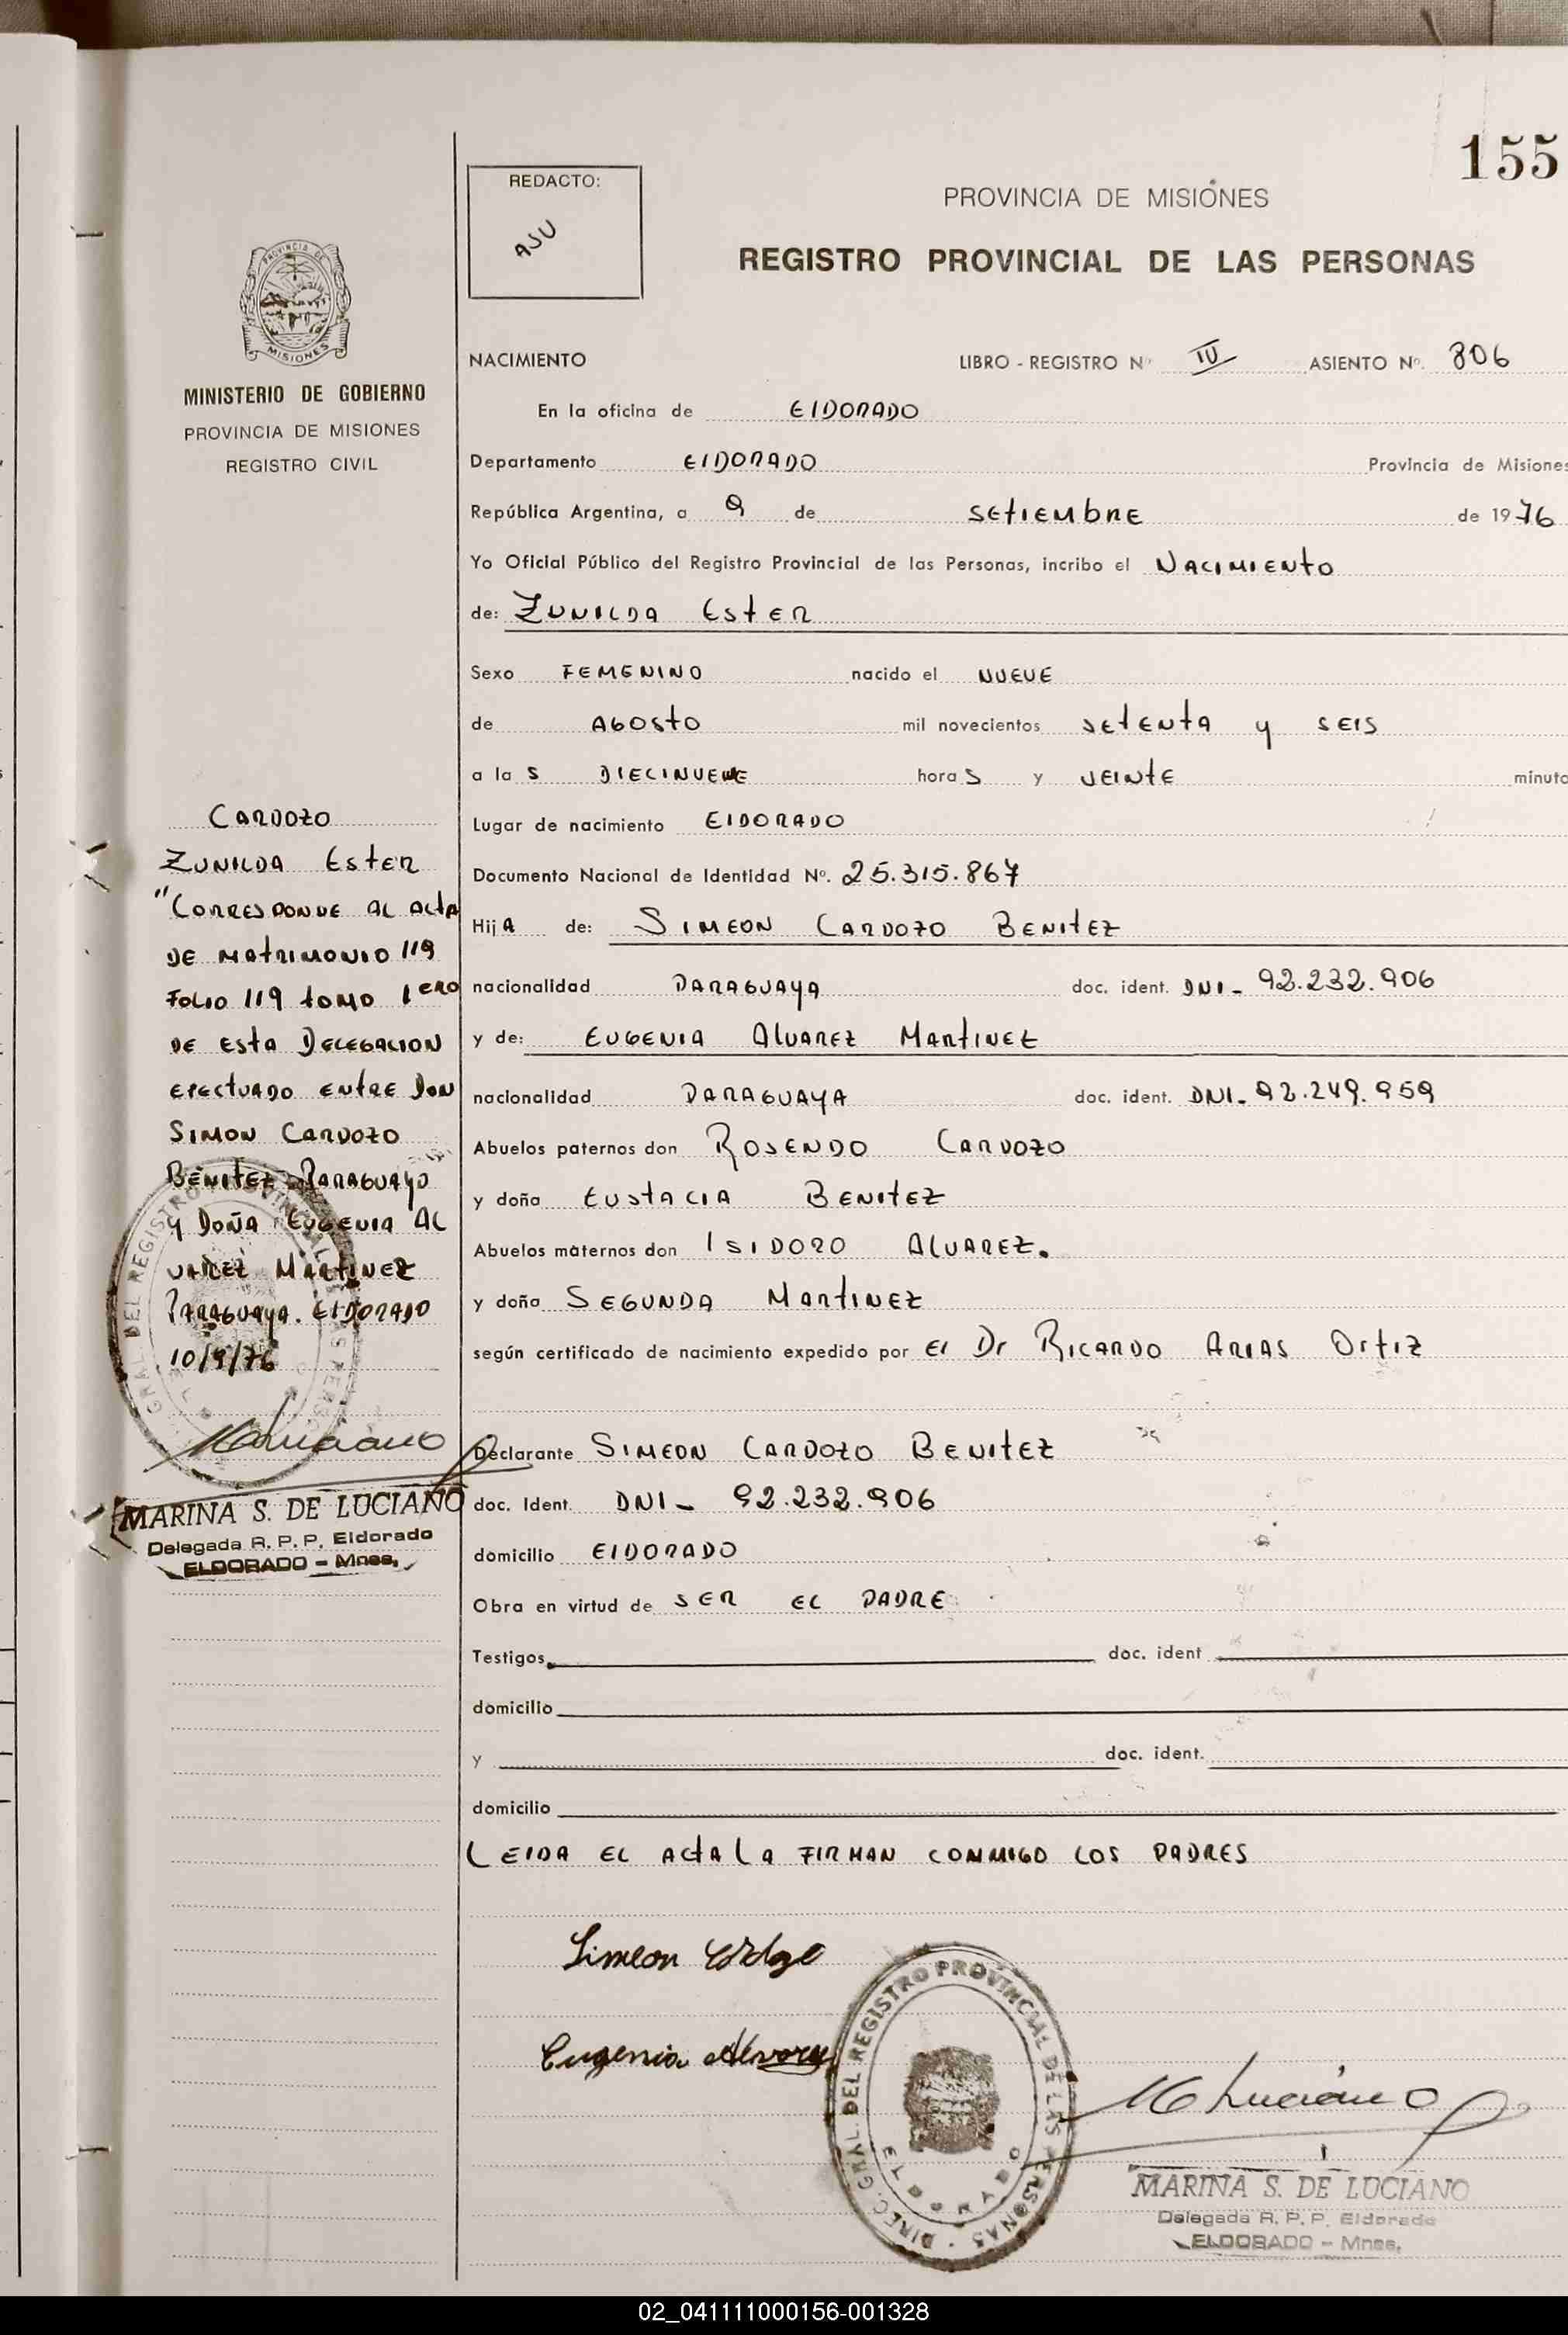 155
REDACTO:
ASU
PROVINCIA DE MISIONES
REGISTRO PROVINCIAL DE LAS PERSONAS
PROVINCIA DE
MISIONES
MINISTERIO DE GOBIERNO
PROVINCIA DE MISIONES
REGISTRO CIVIL
NACIMIENTO LIBRO - REGISTRO Nº IV ASIENTO Nº. 806
En la oficina de ElDORADO
Departamento ElDORADO Provincia de Misiones
República Argentina, a 9 de SEtIEMbRE de 1976
Yo Oficial Público del Registro Provincial de las Personas, incribo el NACIMIENtO
de: ZUNILDA EstER
Sexo FEMENINO nacido el NUEVE
de AGOSTO mil novecientos SEtENtA y SEIS
a la S DIECINUEVE hora S y VEINTE minuto
Lugar de nacimiento ElDORADO
Documento Nacional de Identidad Nº. 25.315.867
Hij A de: SIMEON CARDOZO BENITEZ
nacionalidad PARAGUAYA doc. ident. DNI- 92.232.906
y de: EUGENIA ALVAREZ MARTINEZ
nacionalidad PARAGUAYA doc. ident. DNI- 92.249.959
Abuelos paternos don ROSENDO CARDOZO
y doña EUSTACIA BENITEZ
Abuelos maternos don ISIDORO ALVAREZ.
y doña SEGUNDA MARTINEZ
según certificado de nacimiento expedido por El Dr RICARDO ARIAS ORTIZ
Declarante SIMEON CARDOZO BENITEZ
doc. Ident. DNI- 92.232.906
domicilio ElDORADO
Obra en virtud de SER EL PADRE
Testigos doc. ident
domicilio
y doc. ident.
domicilio
LEIDA EL ACTA LA FIRMAN CONMIGO LOS PADRES
Simeon
Eugenia Alvarez
DIREC. GRAL. DEL REGISTRO PROVINCIAL DE LAS PERSONAS
ELDORADO
M Luciano
MARINA S. DE LUCIANO
Delegada R. P. P. Eldorado
ELDORADO - Mnes.
CARDOZO
ZUNILDA ESTER
"CORRESPONDE AL ACTA
DE MATRIMONIO 119
FOLIO 119 TOMO 1ERO
DE ESTA DELEGACION
EFECTUADO ENTRE DON
SIMON CARDOZO
BENITEZ PARAGUAYO
Y DOÑA EUGENIA AL
VAREZ MARTINEZ
PARAGUAYA. ElDORADO
10/9/76
M Luciano
MARINA S. DE LUCIANO
Delegada R. P. P. Eldorado
ELDORADO - Mnes.
02_041111000156-001328